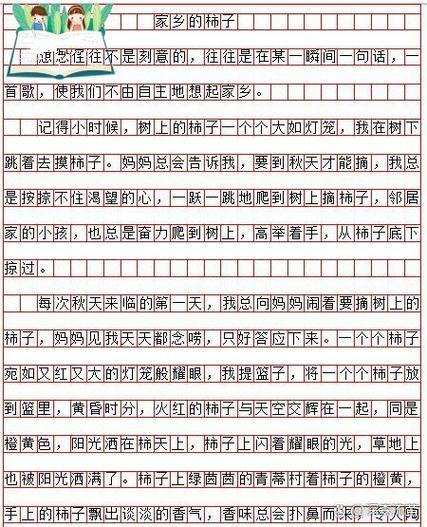 家乡的柿子
想念往往不是刻意的，往往是在某一瞬间一句话，一
首歌，使我们不由自主地想起家乡。
记得小时候，树上的柿子一个个大如灯笼，我在树下
跳着去摸柿子。妈妈总会告诉我，要到秋天才能摘，我总
是按捺不住渴望的心，一跃一跳地爬到树上摘柿子，邻居
家的小孩，也总是奋力爬到树上，高举着手，从柿子底下
掠过。
每次秋天来临的第一天，我总向妈妈闹着要摘树上的
柿子，妈妈见我天天都念唠，只好答应下来。一个个柿子
宛如又红又大的灯笼般耀眼，我提篮子，将一个个柿子放
到篮里，黄昏时分，火红的柿子与天空交辉在一起，同是
橙黄色，阳光洒在柿天上，柿子上闪着耀眼的光，草地上
也被阳光洒满了。柿子上绿茵茵的青蒂衬着柿子的橙黄，
手上的柿子飘出淡淡的香气，香味总会扑鼻而来，令人陶